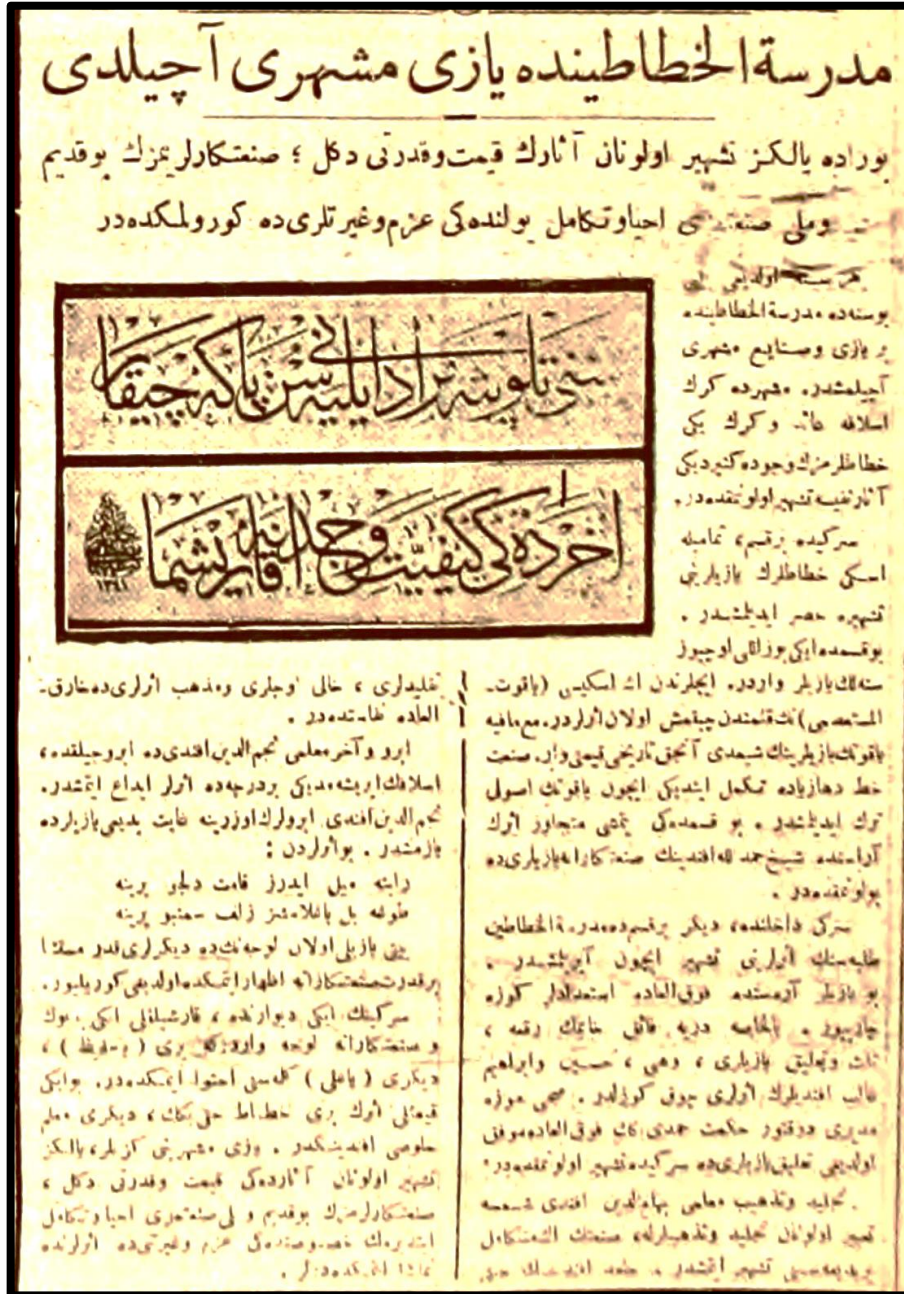 مدرسة الخطاطينده يازى مشهرى آچيلدى
بوراده يالكز تشهير اولونان آثارك قيمت وقدرتى دكل ؛ صنعتكارلريمزك بو قديم
وملى احيا وتكامل يولنده كى عزم وغيرتلرى ده كورولمكده در
هر سنه اولديغى
بو سنه ده مدرسة الخطاطينده
بر يازى وصنايع مشهرى
آچيلمشدر. مشهرده كرك
اسلافه عائد وكرك يكى
خطاطلرمزك وجوده كتيرديكى
آثار نفيسه تشهير اولونمقده در.
سركيده بر قسم، تماميله
اسكى خطاطلرك يازيلرينى
تشهيره حصر ايديلمشدر .
بو قسمده ايكى يوز اللى اوچيوز
سنه لك يازيلر واردر. ايچلرندن اڭ اسكيسى (ياقوت-
المستعصمى) نك قلمندن چيقمش اولان اثرلردر. مع مافيه
ياقوتك يازيلرينك شيمدى آنجق تاريخى قيمتى وار. صنعت
خط دها زياده تكمل ايتديكى ايچون ياقوتك اصولى
ترك ايديلمشدر . بو قسمده كى يتمشى متجاوز اثرك
آراسنده شيخ حمد الله افندينك صنعتكارانه يازيلرى ده
بولونمقده در .
سركى داخلنده، ديكر بر قسم ده مدرسة الخطاطين
طلبه سنك اثرلرينى تشهير ايچون آيريلمشدر .
بو يازيلر آره سنده فوق العاده استعدادلر كوزه
چارپيور . بالخاصه دريه فائق خانمك رقعه ،
ثلث وتعليق يازيلرى ، وهبى ، حسين وابراهيم
غالب افنديلرك اثرلرى چوق كوزلدر . صحى موزه
مديرى دوقتور حكمت حمدى بك فوق العاده موفق
اولديغى تعليق يازيلرى ده سركيده تشهير اولونمقده در.
تجليد وتذهيب معلمى بهاء الدين افندى شمسه
تعبير اولونان تجليد وتذهيبلرله، صنعتك
تشهير ايتمشدر .
تقليدلرى ، خالى اوجلرى ومذهب اثرلرى ده خارق-
العاده در .
ابرو و آخر معلمى نجم الدين افندى ده ابروجيلقده،
اسلافك ايريشه مديكى بر درجه ده اثرلر ابداع ايتمشدر.
نجم الدين افندى ابرولرك اوزرينه غايت بديعى يازيلر ده
يازمشدر . بو اثرلردن :
رايته ميل ايدرز قامت دلجو يرينه
طوغه بل باغلامشز زلف سمنبو يرينه
بيتى يازيلى اولان لوحه نك ده ديكرلرى قدر
بر قدرت صنعتكارانه اظهار ايتمكده اولديغى كوريليور.
سركينك ايكى ديوارنده ، قارشيلقلى ايكى بيوك
و صنعتكارانه لوحه واردر كه برى ( يا حفيظ ) ،
ديكرى ( يا على ) كله سنى احتوا ايتمكده در. بو ايكى
قيمتلى اثرك برى خطاط حقى بك، ديكرى معلم
خلوصى افندينكدر . يازى مشهرينى كزنلر، يالكز
تشهير اولونان آثارده كى قيمت وقدرتى دكل ،
صنعتكارلرمزك بو قديم و ملى صنعتلرى احيا وتكامل
ايتديرمك خصوصنده كى عزم وغيرتى ده اثرلرنده
تماشا ايتمكده درلر .